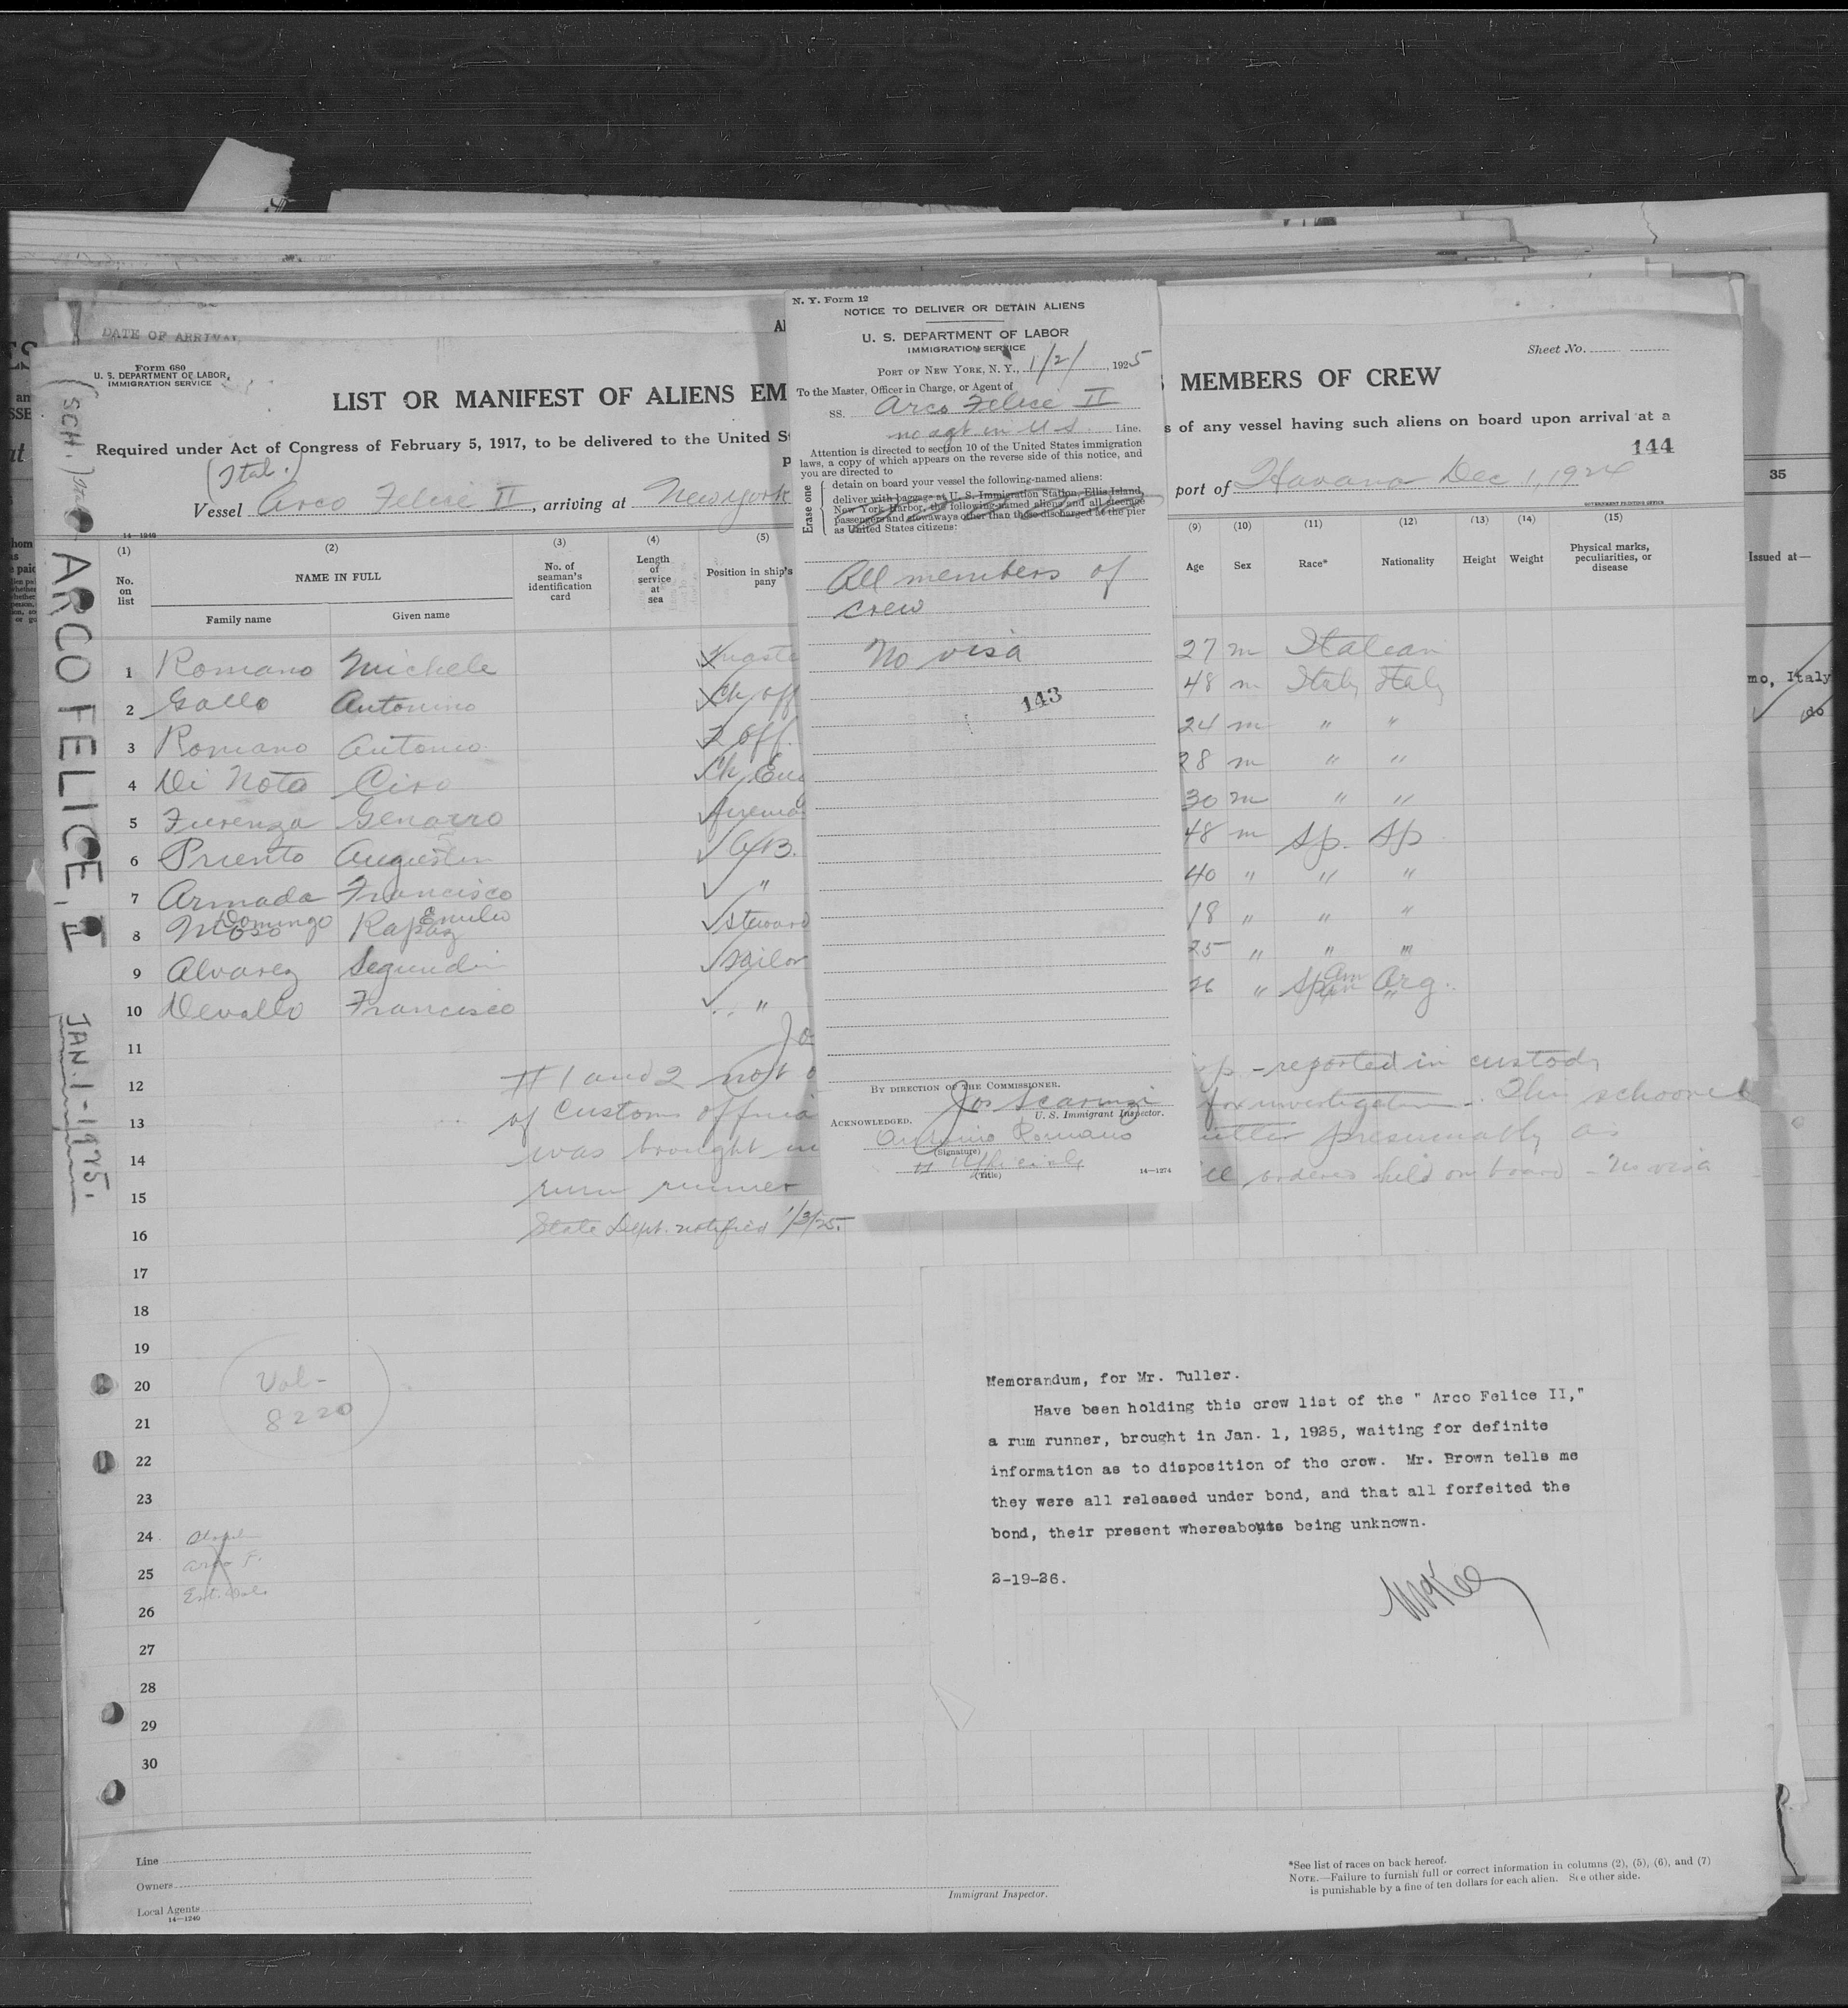 DATE OF ARRIVAL
Form 680
U. S. DEPARTMENT OF LABOR,
IMMIGRATION SERVICE
Sheet No.
LIST OR MANIFEST OF ALIENS EM
MEMBERS OF CREW
Required under Act of Congress of February 5, 1917, to be delivered to the United S
s of any vessel having such aliens on board upon arrival at a
144
(Ital.)
Vessel Arco Felice II, arriving at New York
port of Havana Dec 1, 1924
GOVERNMENT PRINTING OFFICE
14—1240
(1) (2) (3) (4) (5) (9) (10) (11) (12) (13) (14) (15)
No. on list
NAME IN FULL
Family name Given name
No. of seaman's identification card
Length of service at sea
Position in ship's
pany
Age Sex Race* Nationality Height Weight
Physical marks, peculiarities, or disease
1 Romano Michele Maste 27 m Italian
2 Gallo Antonino Ch off 48 m Italy Italy
3 Romano Antonio 2 off. 24 m " "
4 Di Nota Ciro Ch Eng 28 m " "
5 Furenza Genarro firema 30 m " "
6 Priento Augustin A/B. 48 m Sp. Sp
7 Armada Francisco " 40 " " "
8 Domingo Emilio steward 18 " " "
9 Alvarez Segundin Sailor 25 " " "
10 Devallo Francisco " 26 " Span Am Arg.
11
12
13
14
15
16
17
18
19
20
21
22
23
24
25
26
27
28
29
30
# 1 and 2 not o
p - reported in custody
of Customs officia
for investigation. This schooner
was brought in
utter presumably as
rum runner
ll ordered held on board - no visa
State Dept. notified 1/3/25.
Vol-
8220
(SCH.)
ARCO FELICE, II
JAN. 1-1925.
N. Y. Form 12
NOTICE TO DELIVER OR DETAIN ALIENS
U. S. DEPARTMENT OF LABOR
IMMIGRATION SERVICE
PORT OF NEW YORK, N. Y., 1/2/, 1925
To the Master, Officer in Charge, or Agent of
SS. Arco Felice II
no agt in U S Line.
Attention is directed to section 10 of the United States immigration
laws, a copy of which appears on the reverse side of this notice, and
you are directed to
Erase one
detain on board your vessel the following-named aliens:
deliver with baggage at U. S. Immigration Station, Ellis Island,
New York Harbor, the following-named aliens and all steerage
passengers and stowaways other than those discharged at the pier
as United States citizens:
All members of
crew
No visa
143
BY DIRECTION OF THE COMMISSIONER.
Jos Scarinzi
U. S. Immigrant Inspector.
ACKNOWLEDGED.
Antonino Romano
(Signature)
(Title)
14—1274
Memorandum, for Mr. Tuller.
Have been holding this crew list of the " Arco Felice II,"
a rum runner, brought in Jan. 1, 1925, waiting for definite
information as to disposition of the crew. Mr. Brown tells me
they were all released under bond, and that all forfeited the
bond, their present whereabouts being unknown.
2-19-26.
McKee
Line
Owners
Local Agents
14—1240
Immigrant Inspector.
*See list of races on back hereof.
NOTE.—Failure to furnish full or correct information in columns (2), (5), (6), and (7)
is punishable by a fine of ten dollars for each alien. See other side.
35
Issued at—
mo, Italy
do